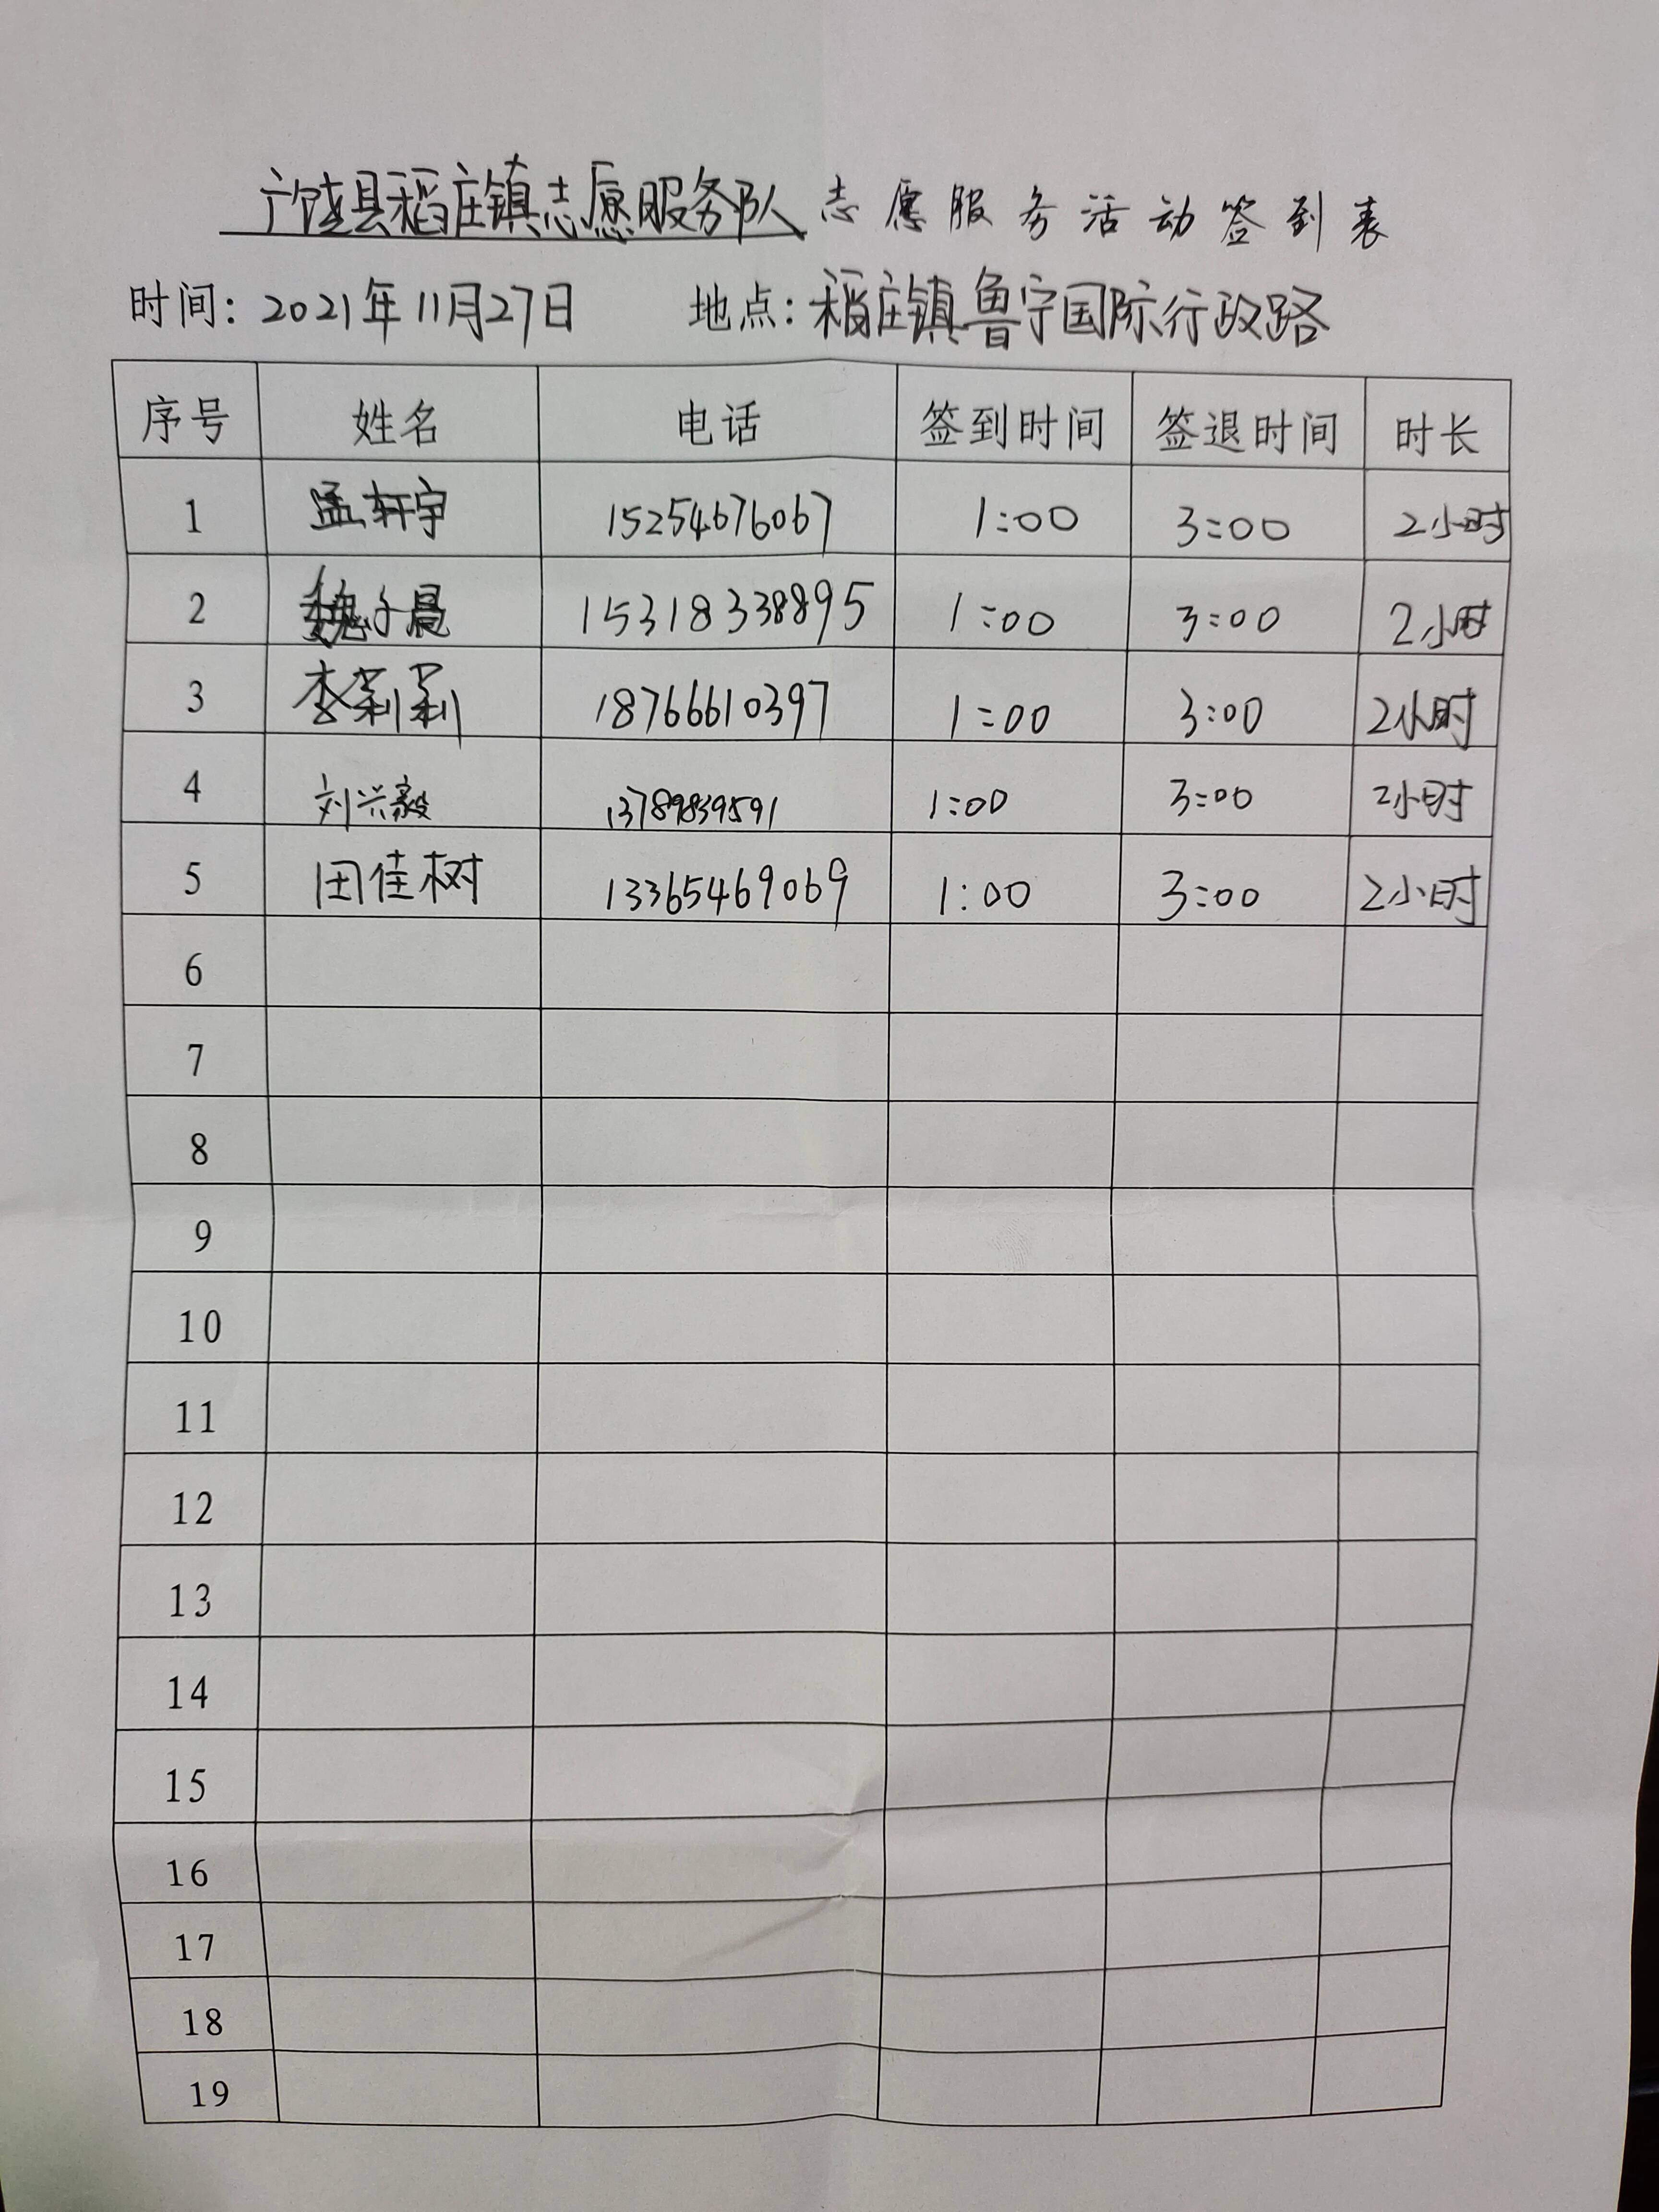 广饶县稻庄镇志愿服务队志愿服务活动签到表
时间：2021年11月27日 地点：稻庄镇鲁宁国际行政路
序号 姓名 电话 签到时间 签退时间 时长
1 孟轩宇 15254676067 1:00 3:00 2小时
2 魏子晨 15318338895 1:00 3:00 2小时
3 李莉莉 18766610397 1:00 3:00 2小时
4 刘兴毅 13789839591 1:00 3:00 2小时
5 田佳树 13365469069 1:00 3:00 2小时
6
7
8
9
10
11
12
13
14
15
16
17
18
19